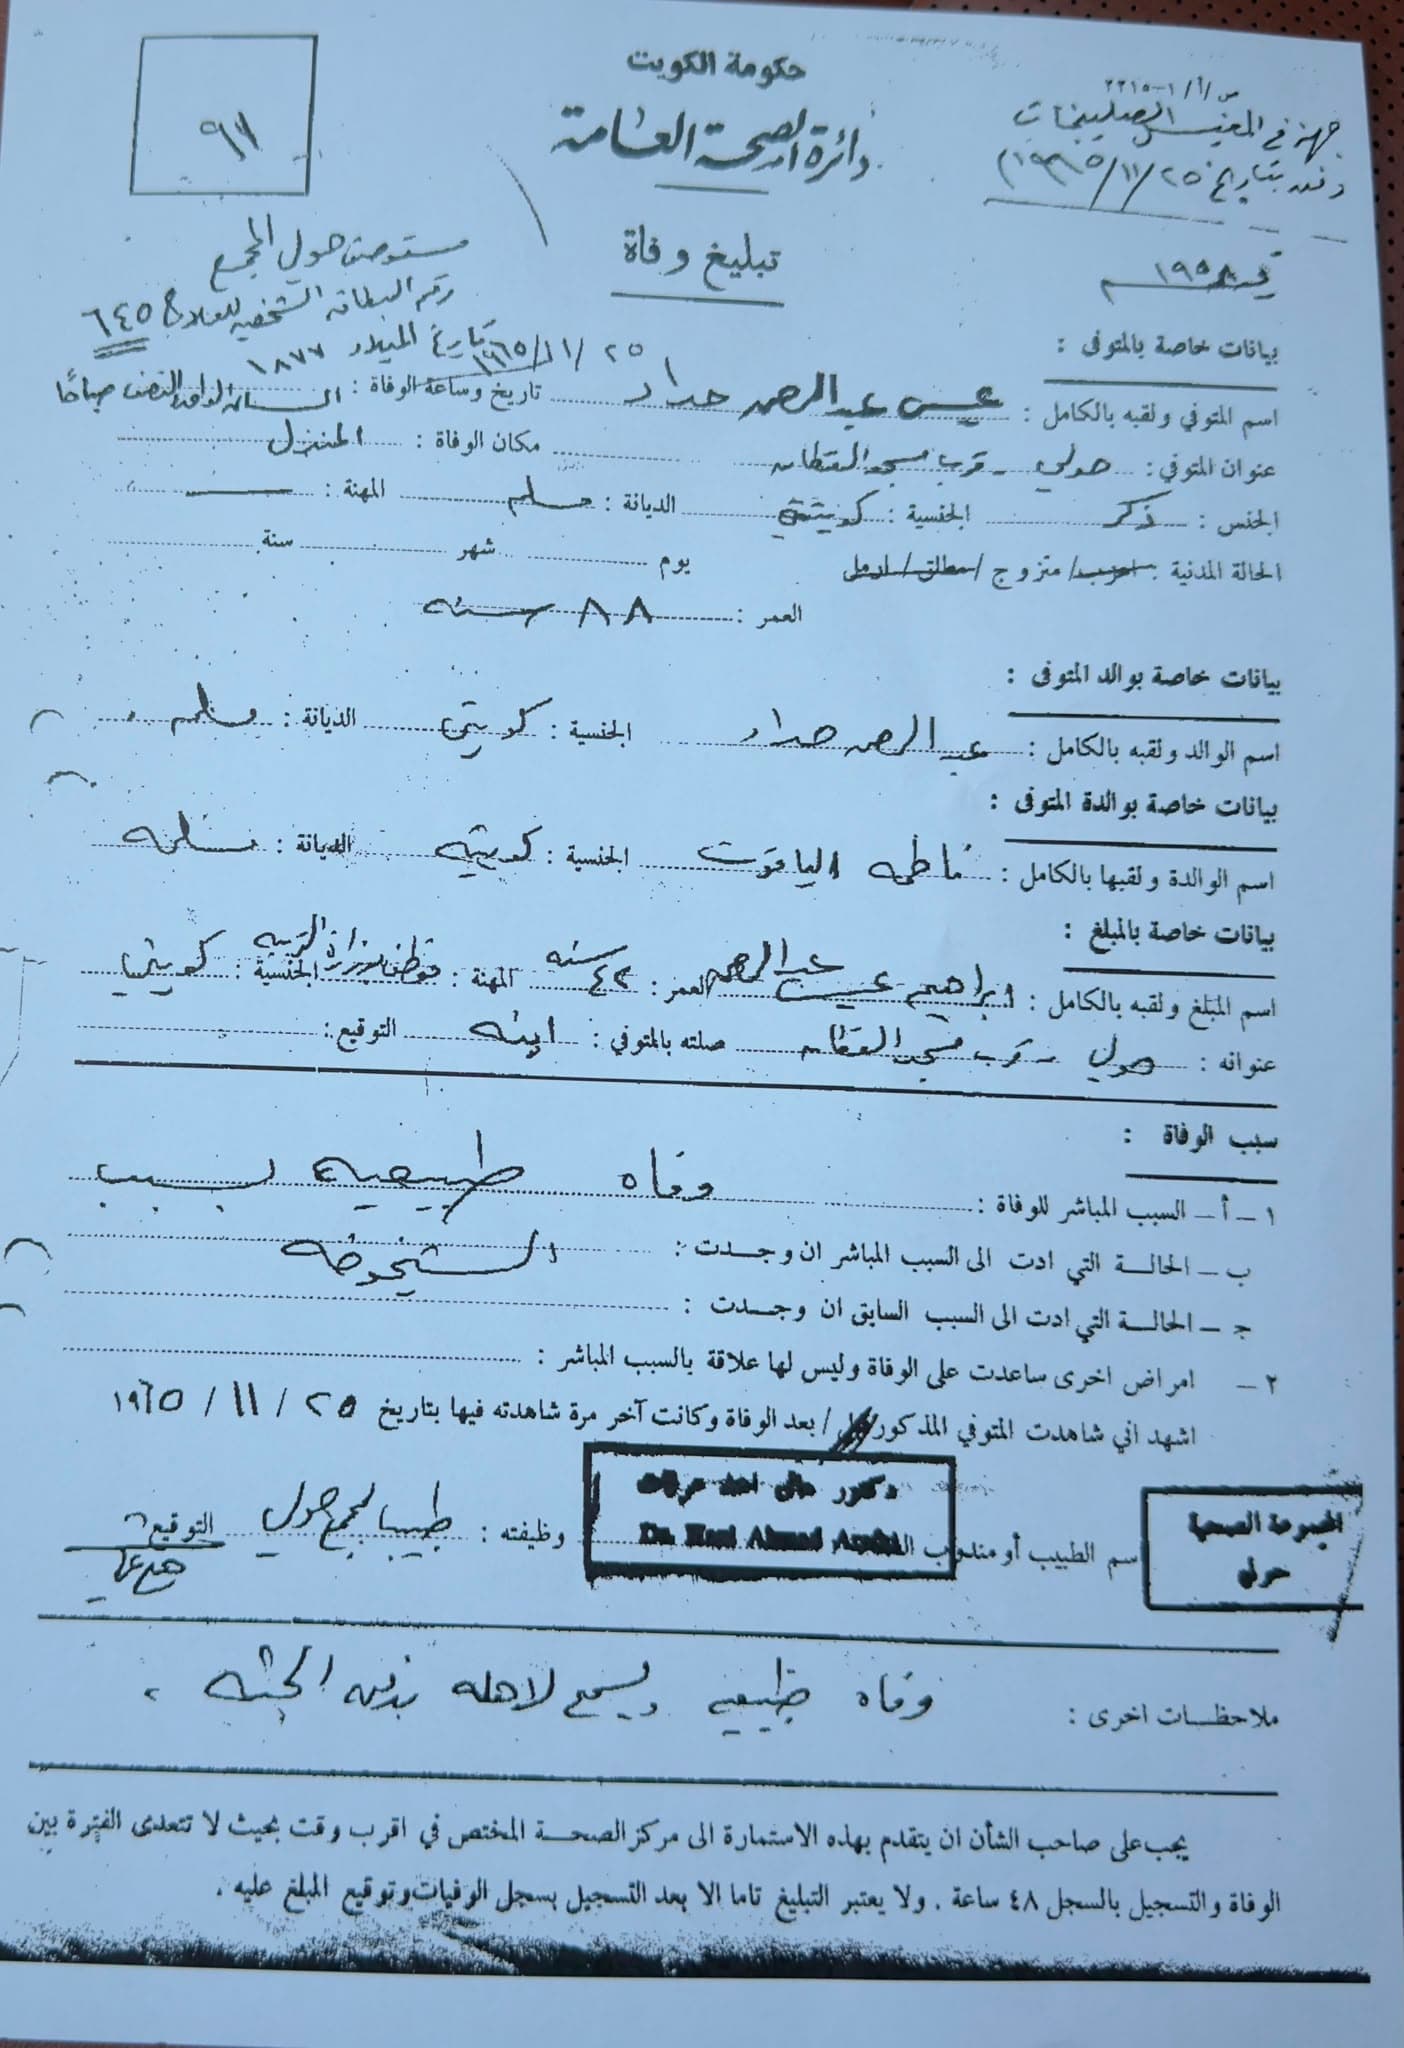 حكومة الكويت
دائرة الصحة العامة
ص/أ/١-٢٢١٥
جهز في المغيسل الصليبيخات
ودفن بتاريخ ٢٥/١١/١٩٦٥
٩٧
تبليغ وفاة
مستوصف حولي المجمع
رقم البطاقه الشخصيه للعلاج ٦٤٥
تاريخ الميلاد ١٨٧٧
بيانات خاصة بالمتوفى :
٢٥/١١/١٩٦٥
اسم المتوفي ولقبه بالكامل : عيسى عبدالرحمن حداد تاريخ وساعة الوفاة : الساعه الواحده والنصف صباحًا
عنوان المتوفي : حولي - قرب مسجد مكان الوفاة : المنزل
الجنس : ذكر الجنسية : كويتي الديانة : مسلم المهنة : ــ
الحالة المدنية : اعزب / متزوج / مطلق / ارمل يوم شهر سنة
العمر : ٨٨ سنه
بيانات خاصة بوالد المتوفى :
اسم الوالد ولقبه بالكامل : عبدالرحمن حداد الجنسية : كويتي الديانة : مسلم
بيانات خاصة بوالدة المتوفى :
اسم الوالدة ولقبها بالكامل : فاطمه الياقوت الجنسية : كويتيه الديانة : مسلمه
بيانات خاصة بالمبلغ :
اسم المبلغ ولقبه بالكامل : ابراهيم عيسى عبدالرحمن العمر : ٤٢ سنه المهنة : موظف بوزارة التربيه الجنسية : كويتي
عنوانه : حولي - قرب مسجد صلته بالمتوفي : ابنه التوقيع :
سبب الوفاة :
١ - أ - السبب المباشر للوفاة : وفاه طبيعيه بسبب
ب - الحالة التي ادت الى السبب المباشر ان وجدت : الشيخوخه
ج - الحالة التي ادت الى السبب السابق ان وجدت :
٢ - امراض اخرى ساعدت على الوفاة وليس لها علاقة بالسبب المباشر :
اشهد اني شاهدت المتوفي المذكور / بعد الوفاة وكانت آخر مرة شاهدته فيها بتاريخ ٢٥ / ١١ / ١٩٦٥
المجموعة الصحية
حولي
اسم الطبيب أو مندوب
دكتور هاني احمد عرفات
Dr. Hani Ahmad Arafat
وظيفته : طبيب مجمع حولي التوقيع
ملاحظات اخرى : وفاه طبيعيه ويسمح لاهله بدفن الجثه .
يجب على صاحب الشأن ان يتقدم بهذه الاستمارة الى مركز الصحة المختص في اقرب وقت بحيث لا تتعدى الفترة بين
الوفاة والتسجيل بالسجل ٤٨ ساعة . ولا يعتبر التبليغ تاما الا بعد التسجيل بسجل الوفيات وتوقيع المبلغ عليه .